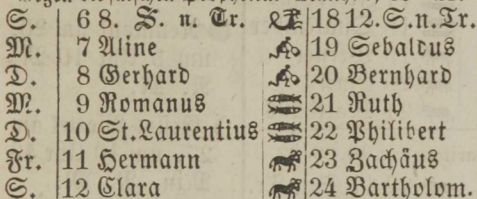 S. 6 8. S. n. Tr. 18 12.S.n.Tr.
M. 7 Aline 19 Sebaldus
D. 8 Gerhard 20 Bernhard
M. 9 Romanus 21 Ruth
D. 10 St.Laurentius 22 Philibert
Fr. 11 Hermann 23 Zachäus
S. 12 Clara 24 Bartholom.